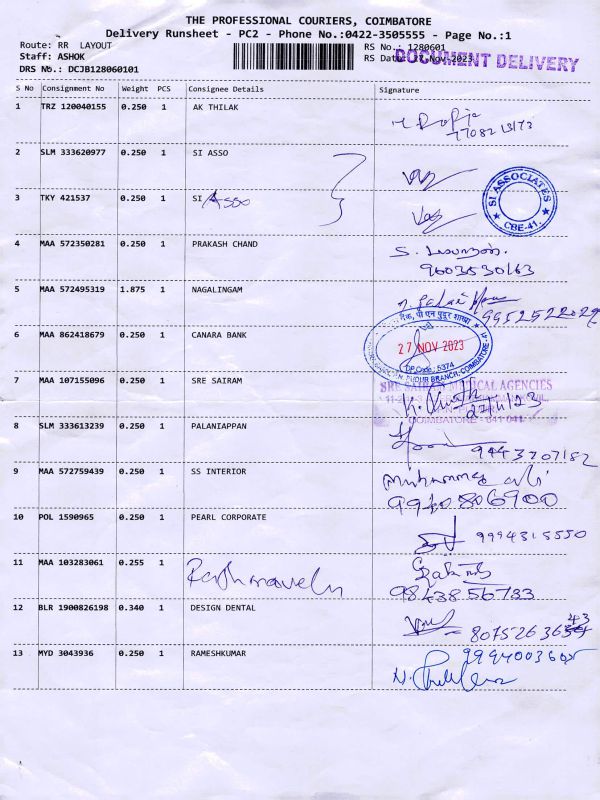 THE PROFESSIONAL COURIERS, COIMBATORE
Delivery Runsheet - PC2 - Phone No.:0422-3505555 - Page No.:1
Route: RR LAYOUT
RS No.: 1280601
Staff: ASHOK
RS Date: 27-Nov-2023
DOCUMENT DELIVERY
DRS No.: DCJB128060101
S No Consignment No Weight PCS Consignee Details Signature
1 TRZ 120040155 0.250 1 AK THILAK
2 SLM 333620977 0.250 1 SI ASSO
3 TKY 421537 0.250 1 SI Asso
SI ASSOCIATES
CBE-41.
4 MAA 572350281 0.250 1 PRAKASH CHAND
9603530163
5 MAA 572495319 1.875 1 NAGALINGAM
6 MAA 862418679 0.250 1 CANARA BANK
27 NOV 2023
DP Code : 5374
PUDUR BRANCH, COIMBATORE
7 MAA 107155096 0.250 1 SRE SAIRAM
SRE SAIRAM MEDICAL AGENCIES
27/11/23
COIMBATORE - 641 041.
8 SLM 333613239 0.250 1 PALANIAPPAN
9443707182
9 MAA 572759439 0.250 1 SS INTERIOR
9940806900
10 POL 1590965 0.250 1 PEARL CORPORATE
9994315550
11 MAA 103283061 0.255 1
9843856733
12 BLR 1900826198 0.340 1 DESIGN DENTAL
13 MYD 3043936 0.250 1 RAMESHKUMAR